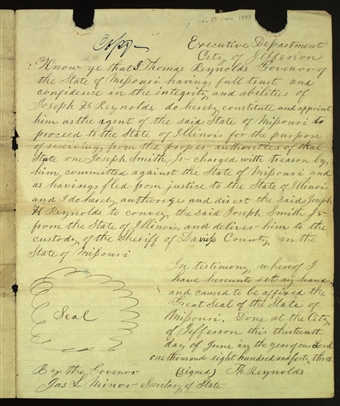 13 June 1843
Copy
Executive Department
City of Jefferson
Know ye that I Thomas Reynolds Governor of
the State of Missouri having full trust and
confidence in the integrity and abilities of
Joseph H Reynolds do hereby constitute and appoint
him as the agent of the said State of Missouri to
proceed to the State of Illinois for the purpose
of receiving from the proper authorities of that
State one Joseph Smith Jr charged with treason by
him committed against the State of Missouri and
as having fled from justice to the State of Illinois
and I do hereby authorize and direct the said Joseph
H Reynolds to convey the said Joseph Smith Jr
from the State of Illinois, and deliver him to the
custody of the Sheriff of Daviess County, in the
State of Missouri
In testimony whereof I
have hereunto set my hand
and caused to be affixed the
Great Seal of the State of
Missouri. Done at the City
of Jefferson this thirteenth
day of June in the year of our Lord
one thousand eight hundred and forty three
Seal
By the Governor (signed) Th Reynolds
Jas L Minor Secretary of State